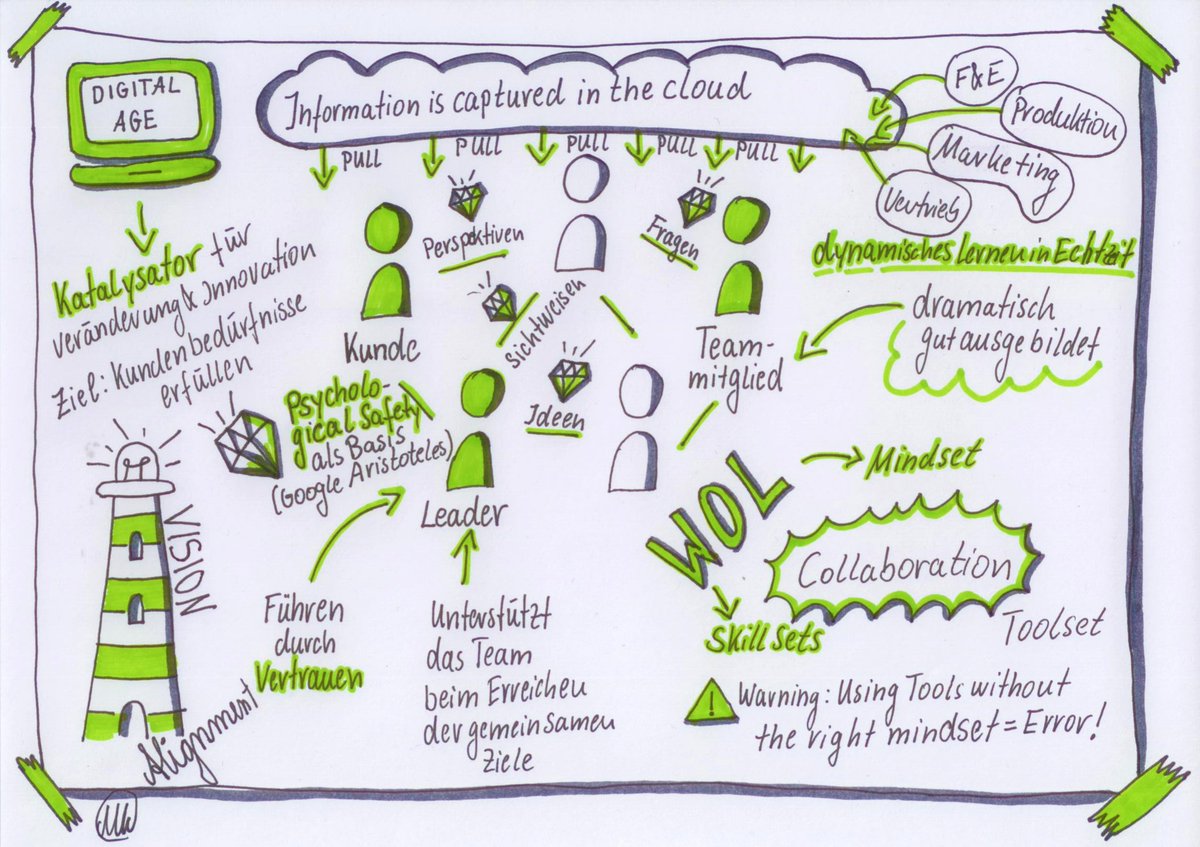 DIGITAL
AGE
Information is captured in the cloud
F&E
Produktion
Marketing
Vertrieb
PULL
PULL
PULL
PULL
PULL
Katalysator für
Veränderung & Innovation
Ziel: Kundenbedürfnisse
erfüllen
Perspektiven
Fragen
Sichtweisen
Ideen
Kunde
Team-
mitglied
dynamisches Lernen in Echtzeit
dramatisch
gut ausgebildet
Psycholo-
gical Safety
als Basis
(Google Aristoteles)
Leader
VISION
Alignment
Führen
durch
Vertrauen
Unterstützt
das Team
beim Erreichen
der gemeinsamen
Ziele
WOL
Mindset
Collaboration
Skill Sets
Toolset
Warning: Using Tools without
the right mindset = Error!